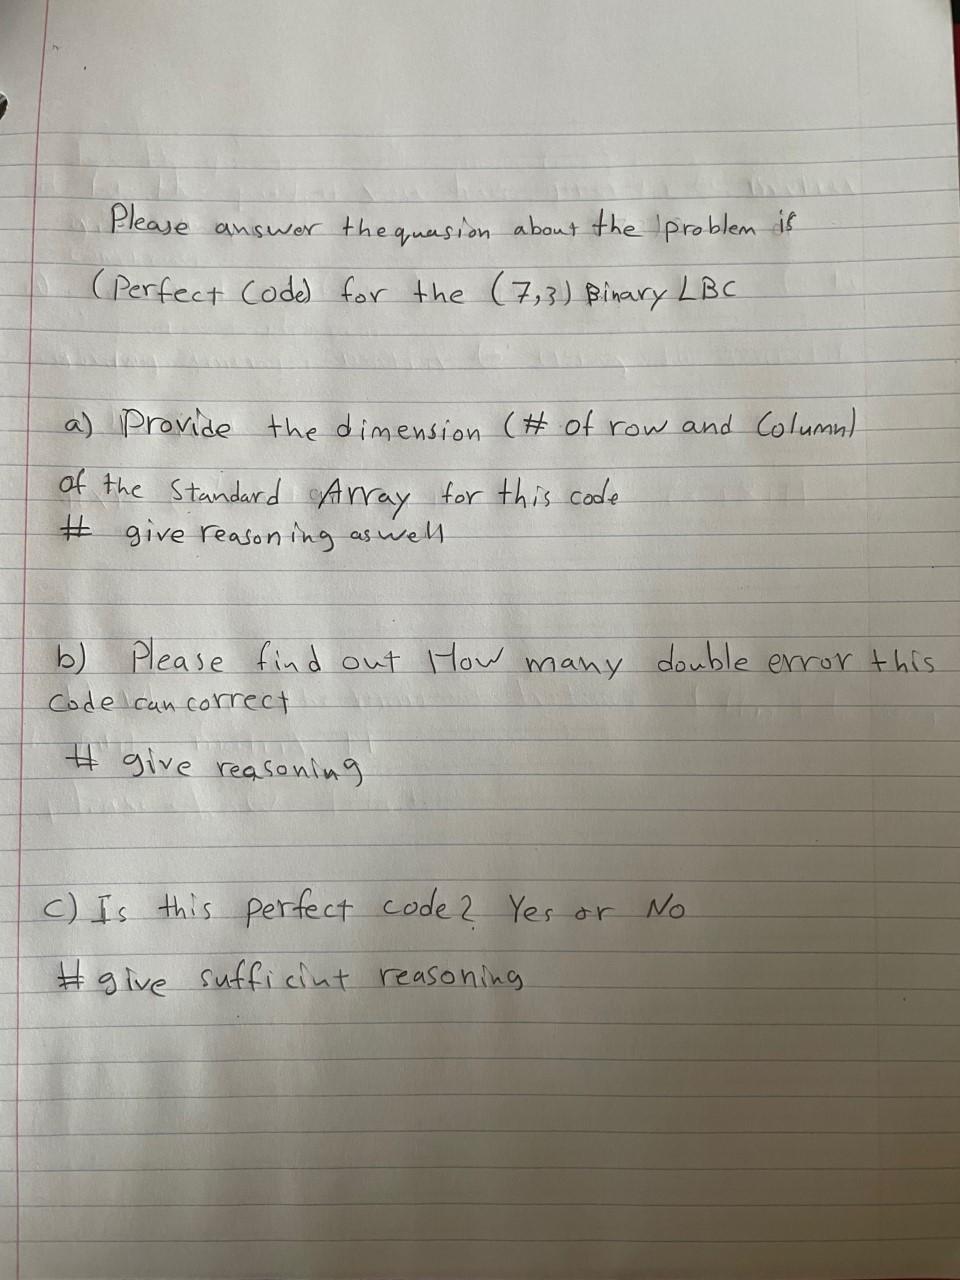 Please answer the quasion about the problem if
(Perfect Code) for the (7,3) Binary LBC
a) Provide the dimension (# of row and Column)
of the Standard Array for this code
# give reasoning as well
b) Please find out How many double error this
Code can correct
# give reasoning
c) Is this perfect code? Yes or No
# give sufficint reasoning